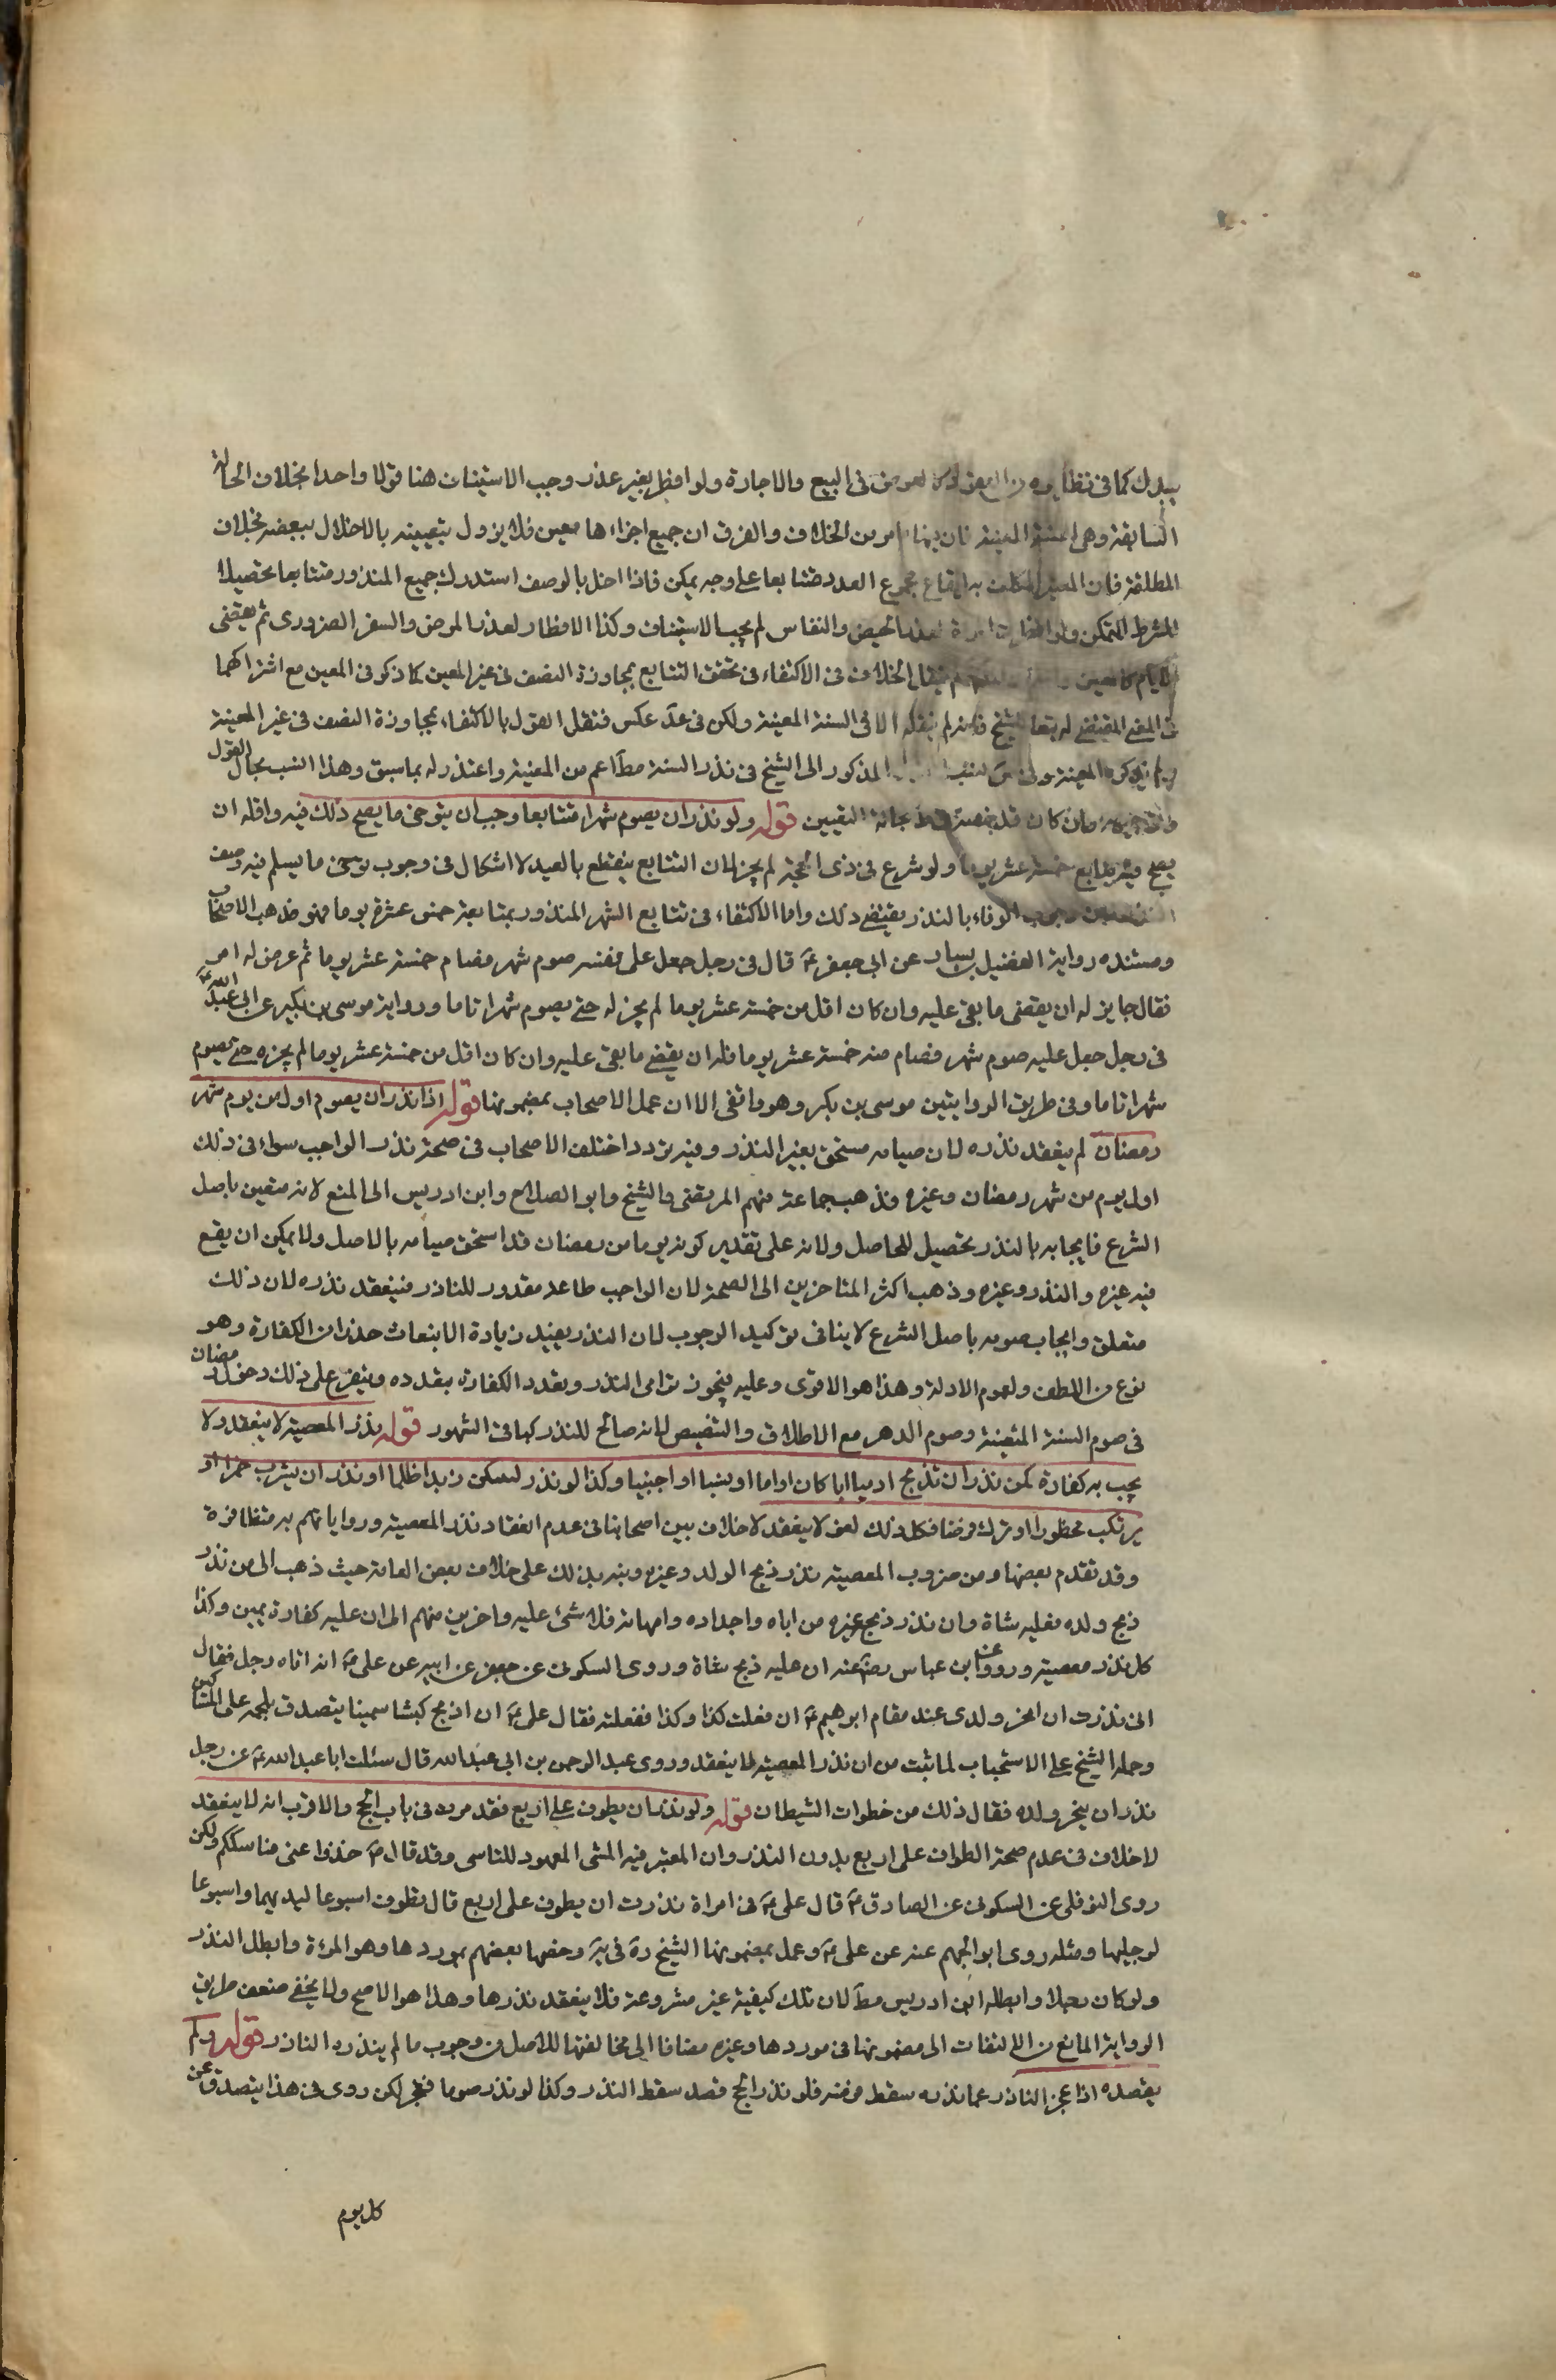 ببدل كما فى نظايره من العوض فى البيع والاجارة ولو افطر بغير عذر وجب الاستيناف هنا قولا واحدا بخلاف الحالة
السابقة وهى السنة المعينة فان فيها ما مر من الخلاف والفرق ان جميع اجزاءها معين فلا يزول بتعيينه بالاخلال ببعضه بخلاف
المطلقة فان المعين المكلف به ايقاع مجموع العدد متتابعا على وجه يمكن فاذا اخل بالوصف استدرك جميع المنذور متتابعا تحصيلا
للشرط المتمكن ولو افطرت امراة لعذر الحيض والنفاس لم يجب الاستيناف وكذا الافطار لعذر المرض والسفر الضرورى ثم يقضى
الايام كالمعين الخلاف فى الاكتفاء فى تحقق التتابع بمجاوزة النصف فى غير المعين كما ذكر فى المعين مع اشتراكهما
فى المعنى المقتضى له تبعا للشيخ فانه لم ينقله الا فى السنة المعينة ولكن فى عد عكس فنقل القول بالاكتفاء بمجاوزة النصف فى غير المعينة
ولم يذكره المعينة وفى المذكور الى الشيخ فى نذر السنة مطآ اعم من المعنية واعتذر له بما سبق وهذا انسب بحال القول
وان كان قد التعيين قوله ولو نذر ان يصوم شهرا متتابعا وجب ان يتوخى ما يصح ذلك فيه واقله ان
يصح فيه تتابع خمسة عشر يوما ولو شرع فى ذى الحجة لم يجز لان التتابع ينقطع بالعيد لا اشكال فى وجوب توخى ما يسلم فيه وصف
وجوب الوفاء بالنذر يقتضى ذلك واما الاكتفاء فى تتابع الشهر المنذور بمتابعة خمس عشرة يوما فهو مذهب الاصحاب
ومستنده رواية الفضيل بن يسار عن ابى جعفر عۤ قال فى رجل جعل على نفسه صوم شهر فصام خمسة عشر يوما ثم عرض له امر
فقال جايز له ان يقضى ما بقى عليه وان كان اقل من خمسة عشر يوما لم يجز له حتى يصوم شهرا تاما ورواية موسى بن بكير عن ابى عبد الله عۤ
فى رجل جعل عليه صوم شهر فصام منه خمسة عشر يوما فله ان يقضى ما بقى عليه وان كان اقل من خمسة عشر يوما لم يجزه حتى يصوم
شهرا تاما وفى طريق الروايتين موسى بن بكر وهو واقفى الا ان عمل الاصحاب بمضمونها قوله اذا نذر ان يصوم اول من يوم شهر
رمضان لم ينعقد نذره لان صيامه مستحق بغير النذر وفيه تردد اختلف الاصحاب فى صحة نذر الواجب سواء فى ذلك
اول يوم من شهر رمضان وغيره فذهب جماعة منهم المرتضى والشيخ وابو الصلاح وابن ادريس الى المنع لانه متعين باصل
الشرع فايجابه بالنذر تحصيل للحاصل ولانه على تقدير كونه يوما من رمضان قد استحق صيامه بالاصل ولا يمكن ان يقع
فيه غيره والنذر وغيره وذهب اكثر المتاخرين الى الصحة لان الواجب طاعة مقدور للناذر فينعقد نذره لان ذلك
متعلق وايجاب صومه باصل الشرع لا ينافى توكيد الوجوب لان النذر يفيد زيادة الانبعاث حذرا من الكفارة وهو
نوع من اللطف ولعموم الادلة وهذا هو الاقوى وعليه فيجوز ترامى النذر وتعدد الكفارة بتعدده ويتفرع على ذلك دخول رمضان
فى صوم السنة المتعينة وصوم الدهر مع الاطلاق والتنصيص لانه صالح للنذر كباقى الشهور قوله نذر المعصية لا ينعقد ولا
يجب به كفارة كمن نذر ان تذبح ادميا ابا كان او اما او نسبا او اجنبيا وكذا لو نذر ليسكن زيدا ظلما او نذر ان يشرب خمرا او
يرتكب محظورا او ترك فرضا فكل ذلك لغو لا ينعقد لا خلاف بين اصحابنا فى عدم انعقاد نذر المعصية ورواياتهم به متظافرة
وقد تقدم بعضها ومن ضروب المعصية نذر ذبح الولد وغيره ونبه بذلك على خلاف بعض العامة حيث ذهب الى من نذر
ذبح ولده فعليه شاة وان نذر ذبح غيره من اباه واجداده وامهاته فلا شئ عليه واخرين منهم الى ان عليه كفارة يمين وكذا
كل نذر معصية ورووا عن ابن عباس رضۤ عنه ان عليه ذبح شاة وروى السكونى عن جعفر عن ابيه عن على عۤ انه اتاه رجل فقال
انى نذرت ان انحر ولدى عند مقام ابرهيم عۤ ان فعلت كذا وكذا ففعلته فقال على عۤ ان اذبح كبشا سمينا يتصدق بلحمه على المساكين
وحمله الشيخ على الاستحباب لما ثبت من ان نذر المعصية لا ينعقد وروى عبد الرحمن بن ابى عبد الله قال سئلت ابا عبد الله عۤ عن رجل
نذر ان ينحر ولده فقال ذلك من خطوات الشيطان قوله ولو نذر ان يطوف على اربع فقد مر به فى باب الحج والاقرب انه لا ينعقد
لا خلاف فى عدم صحة الطواف على اربع بدون النذر وان المعتبر فيه المشى المعهود للناسى وقد قال صۤ خذوا عنى مناسككم ولكن
روى النوفلى عن السكونى عن الصادق عۤ قال على عۤ فى امراة نذرت ان يطوف على اربع قال تطوف اسبوعا ليديهما واسبوعا
لرجليها ومثله روى ابو الجهم عنه عن على عۤ وعمل بمضمونها الشيخ رهۤ فى يهۤ وخصها بعضهم بموردها وهو المرءة وابطل النذر
ولو كان رجلا وابطله ابن ادريس مطآ لان تلك كيفية غير مشروعة فلا ينعقد نذرها وهذا هو الاصح ولا يخفى ضعف طريق
الرواية المانع من الالتفات الى مضمونها فى موردها وغيره مضافا الى مخالفتها للاصل من وجوب ما لم ينذره الناذر قوله ولم
يقصده اذا عجز الناذر عما نذره سقط فرضه فلو نذر الحج فصد سقط النذر وكذا لو نذر صوما فعجز لكن روى فى هذا يتصدق عن
كل يوم